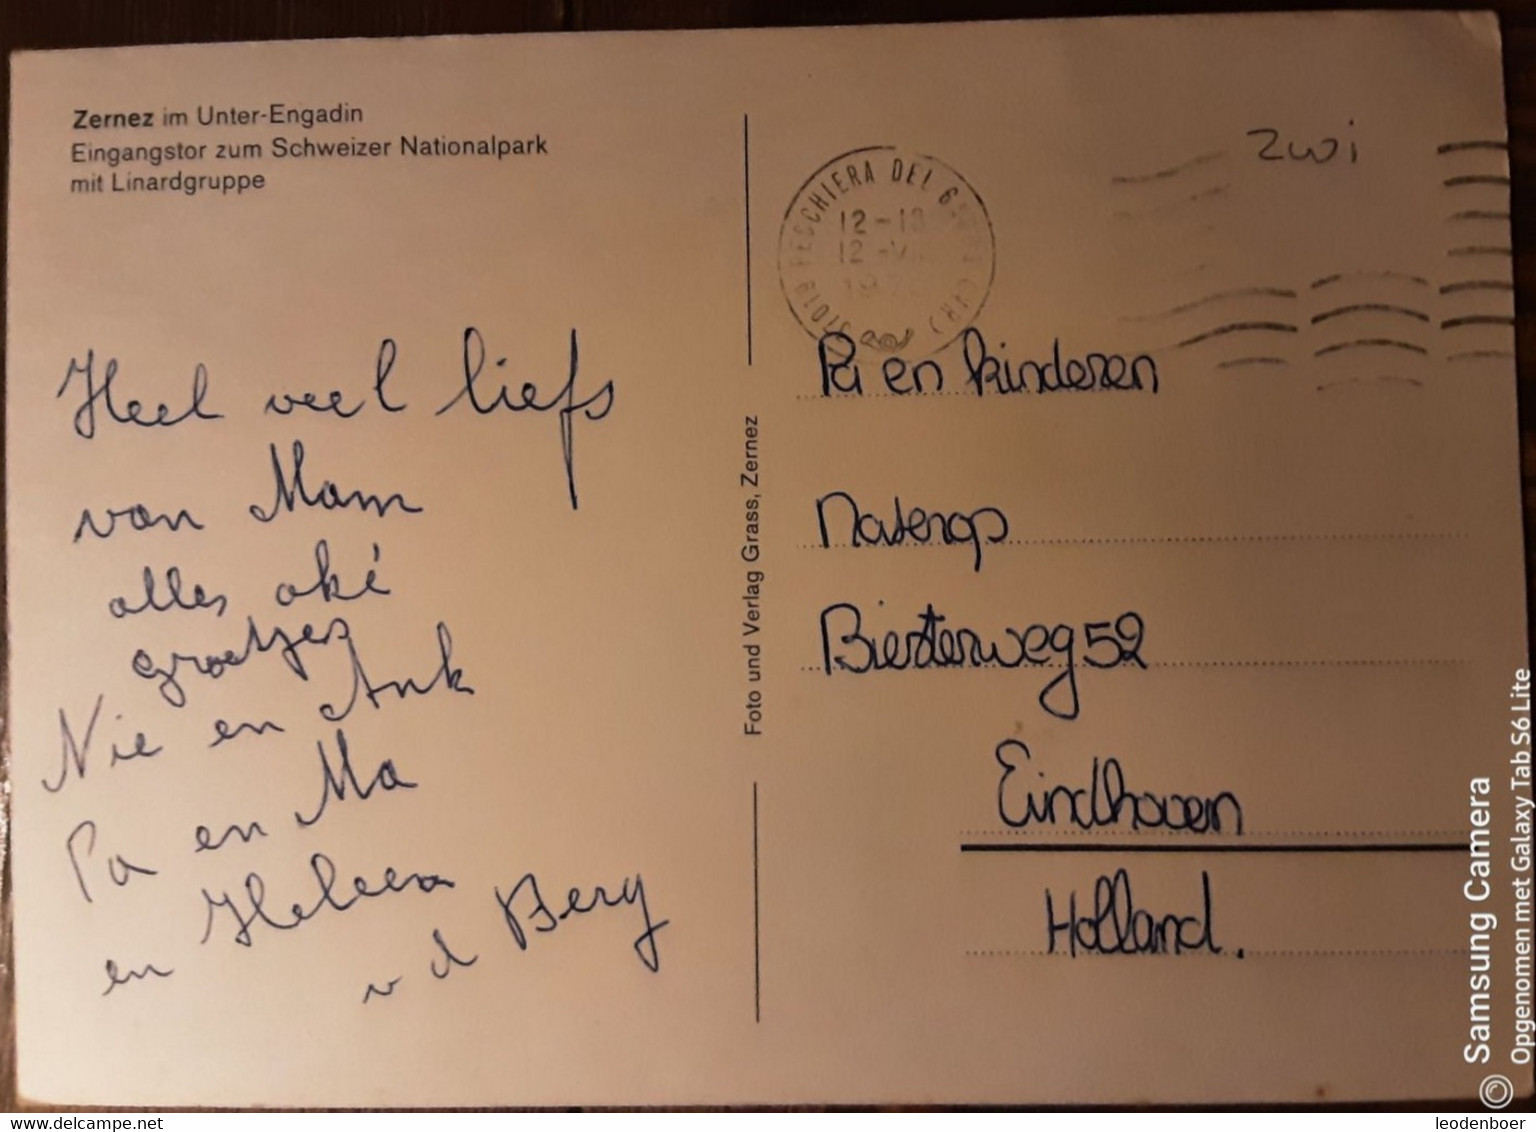 Zernez im Unter-Engadin
Eingangstor zum Schweizer Nationalpark
mit Linardgruppe
Heel veel liefs
van Mam
alles oké
groetjes
Nie en Ank
Pa en Ma
en Heleen
v d Berg
Foto und Verlag Grass, Zernez
zwi
37019 PESCHIERA DEL GARDA (VR)
12-
12-
19
Pa en kinderen
Naterop
Biesterweg 52
Eindhoven
Holland.
© Samsung Camera
Opgenomen met Galaxy Tab S6 Lite
delcampe.net
leodenboer